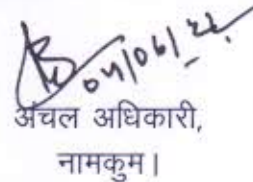 04/06/22
अंचल अधिकारी,
नामकुम।